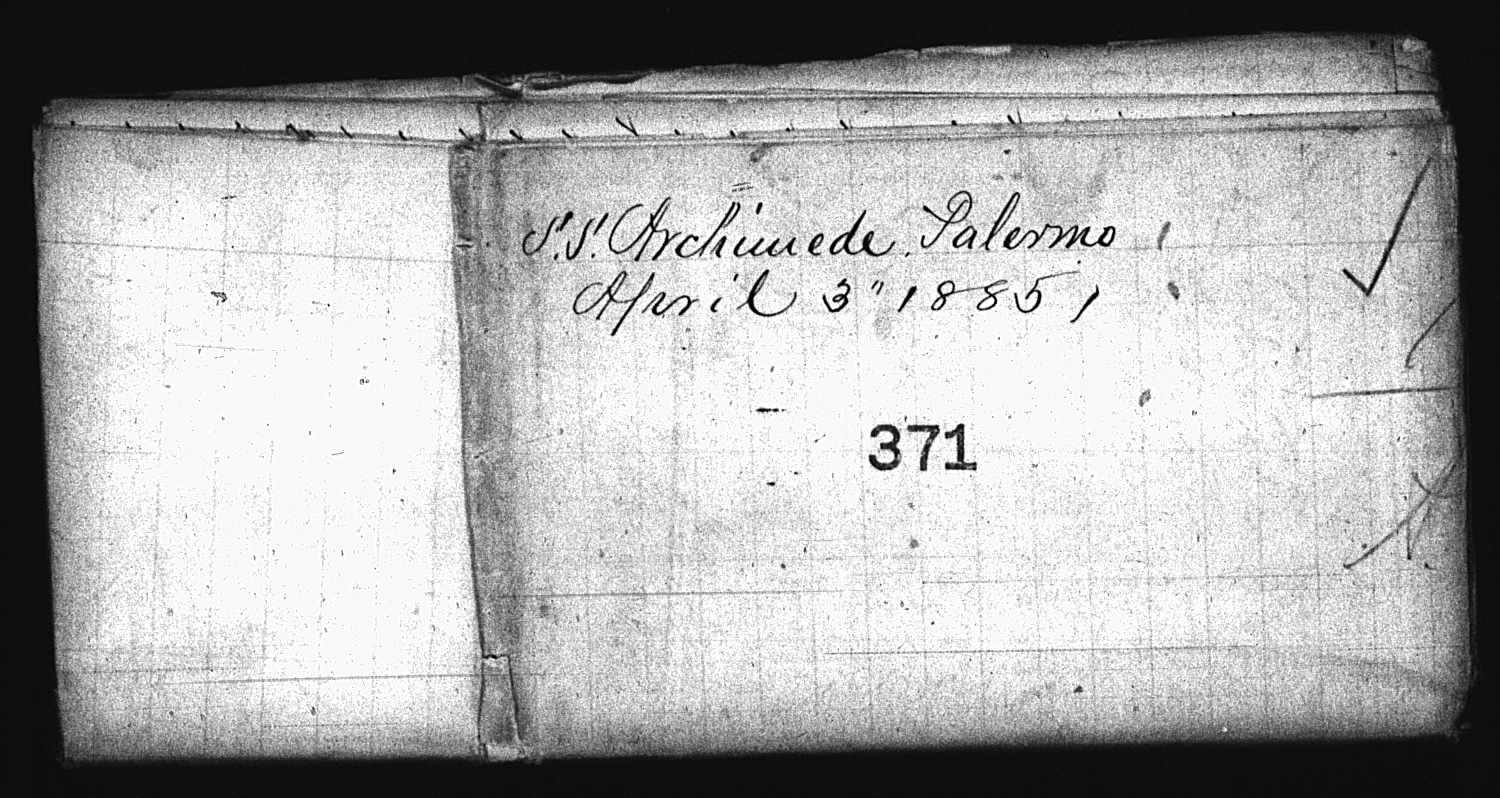 S.S. Archimede. Palermo
April 3" 1885,
371